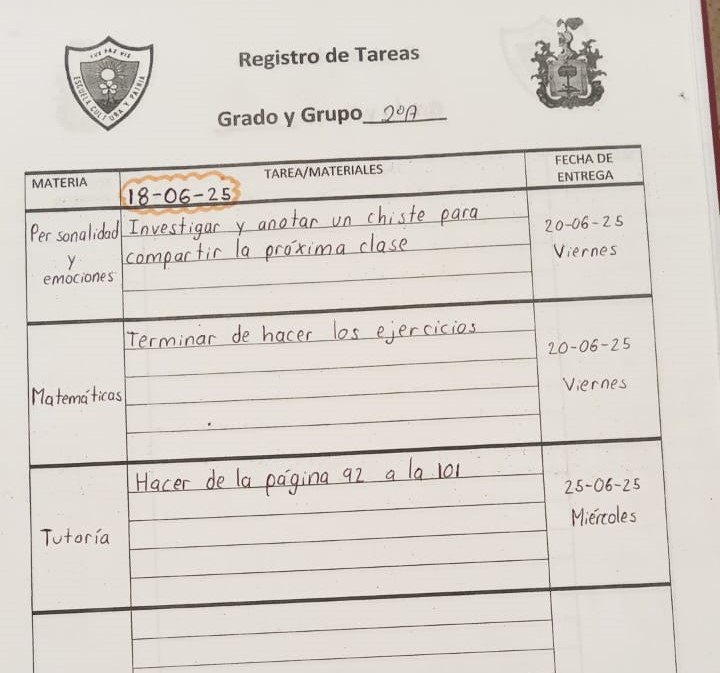 Registro de Tareas
Grado y Grupo 2°A
MATERIA
TAREA/MATERIALES
FECHA DE
ENTREGA
18-06-25
Personalidad
y
emociones
Investigar y anotar un chiste para
compartir la próxima clase
20-06-25
Viernes
Matemáticas
Terminar de hacer los ejercicios
20-06-25
Viernes
Tutoría
Hacer de la página 92 a la 101
25-06-25
Miércoles